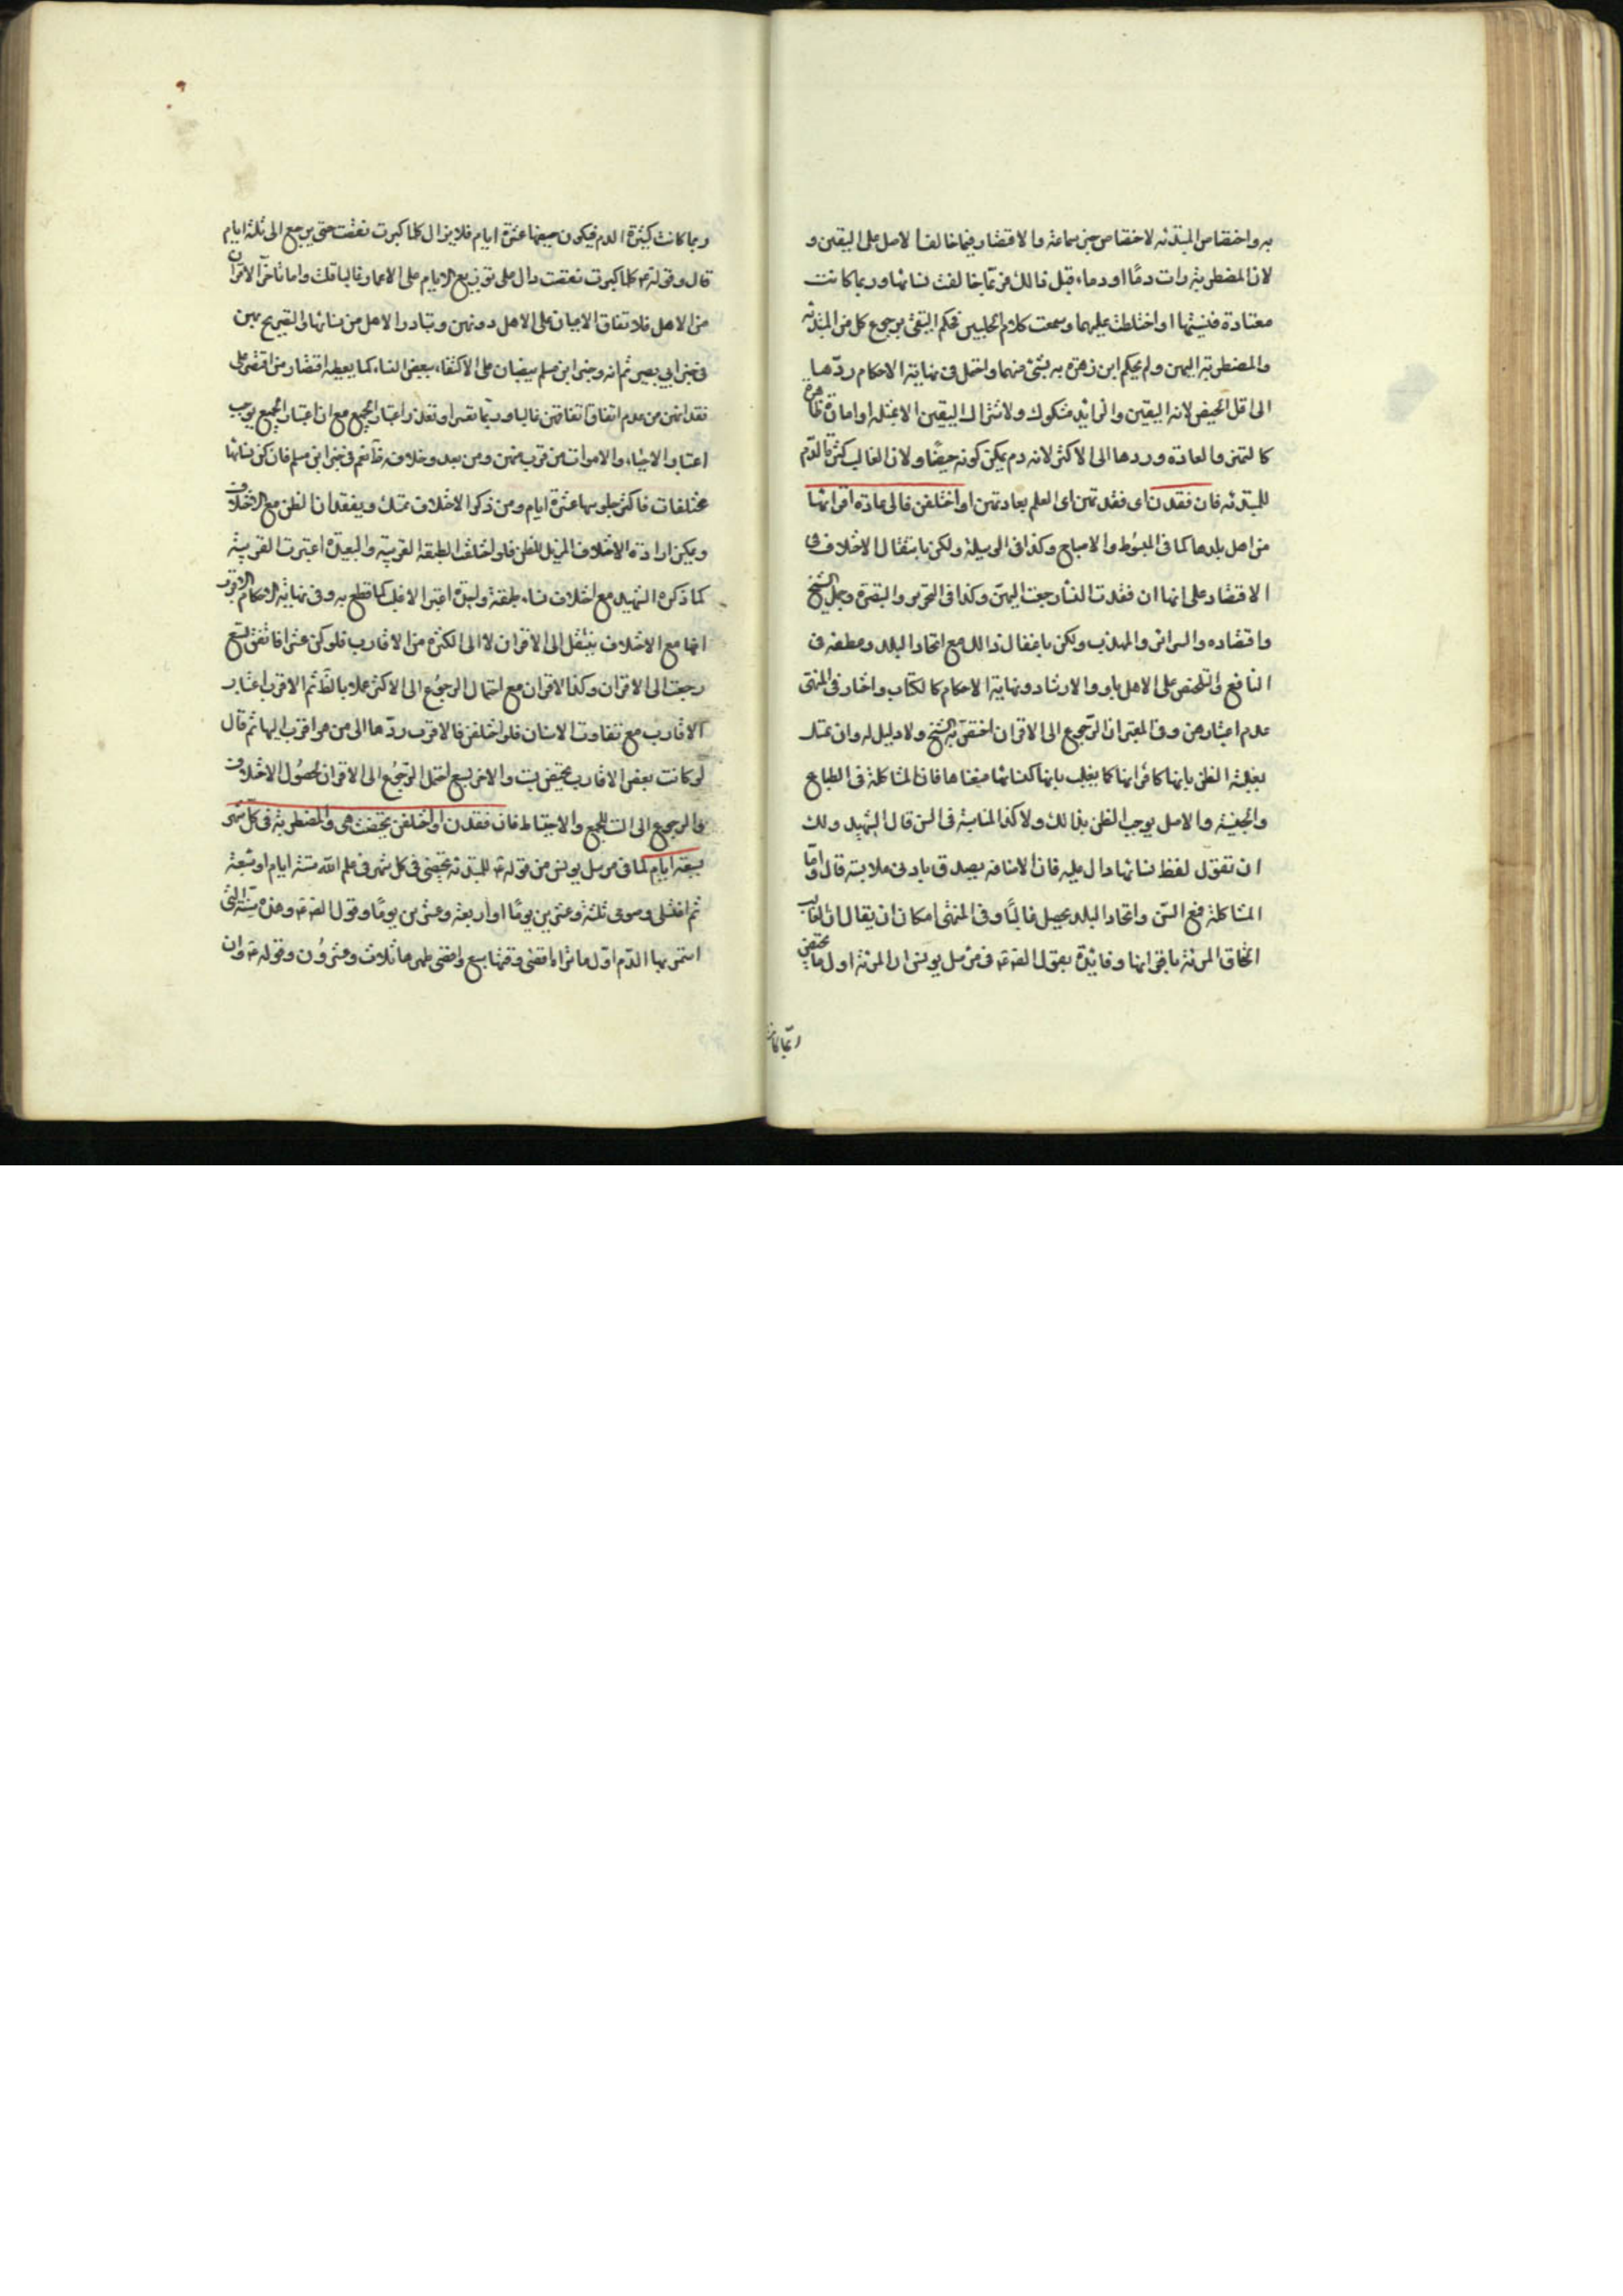 به واختصاص المبتدئه لاختصاص خبر سماعة والاقتصار فيما خالف الاصل على اليقين و
لان المضطربة رات دمًا او دماء قبل ذالك فربّما خالفت نسائها وربما كانت
معتادة فنسيتها او اختلطت عليها وسمعت كلام الحلبيين فحكم التقى برجوع كل من المبتدئه
والمضطربة اليهن ولم يحكم ابن زهرة به بشئ منهما واحتمل فى نهاية الاحكام ردّها
الى اقل الحيض لانه اليقين والزايد مشكوك ولا تترك اليقين الا بمثله او امارة ظاهرة
كالتميز والعادة وردها الى الاكثر لانه دم يمكن كونه حيضًا ولان الغالب كثرة الدّم
للمبتدئه فان فقدن اى فقدتهن اى العلم بعادتهن او اختلفن فالى عادة اقرانها
من اهل بلدها كما فى المبسوط والاصباح وكذا فى الوسيلة ولكن بانتقال الاختلاف فى
الاقتصار على انها ان فقدت النسا رجعت اليهن وكذا فى التحرير والتبصرة وجمل الشيخ
واقتصاده والسرائر والمهذب ولكن باغفال ذالك مع اتحاد البلد وعطفه فى
النافع والتلخيص على الاهل باو والارشاد ونهاية الاحكام كالكتاب واختار فى المنتهى
عدم اعتبارهن وفى المعتبر ان الرّجوع الى الاقران اختص به الشيخ ولا دليل له وان تمسك
بغلبة الظن بانها كاقرانها كما يغلب بانها كنسائها منعناها فان المشاكلة فى الطباع
والجنسية والاصل يوجب الظن بذالك ولا كذا المناسبة فى السن قال الشهيد ولك
ان تقول لفظ نسائها دال عليه فان الاضافه يصدق بادنى ملابسة قال وامّا
المشاكلة فمع السّن واتحاد البلد يحصل غالبًا وفى المنتهى امكان ان يقال ان الغالب
الحاق المرئة باقرانها وفائدة بقول الصّ فى مرسل يونس ان المرئة اول ما تحيض
ربّما كانت
ربما كانت كثيرة الدم فيكون حيضها عشرة ايام فلا يزال كلما كبرت نقصت حتى يرجع الى ثلثة ايام
قال وقوله ع كلما كبرت نقصت دال على توزيع الايام على الاعمار غالبا قلت واما تاخر الاقران
من الاهل فلاتفاق الاعيان على الاهل دونهن وتبادر الاهل من نسائها والتصريح بهن
فى خبر ابي بصير ثم انه وخبر ابن مسلم ينصان على الاكتفاء ببعض النساء كما يعطيه اقتصار من اقتصر على
فقدانهن من عدم اتفاق اتفاقهن غالبا وربّما تعسر او تعذر اعتبار الجميع مع ان اعتبار الجميع يوجب
اعتبار الاحياء والاموات من قرب منهن ومن بعد وخلافه ظ نعم فى خبر ابن مسلم فان كن نسائها
مختلفات فاكثر جلوسها عشرة ايام ومن ذكر الاختلاف تمسك ويفقدان الظن مع الاختلاف
ويمكن ارادة الاختلاف المزيل للظن فلو اختلفت الطبقه القريبة والبعيدة اعتبرت القريبة
كما ذكره الشهيد مع اختلاف نساء طبقة وليدة اعتبر الاغلب كما قطع به وفى نهاية الاحكام الاقرب
انها مع الاختلاف ينتقل الى الاقران لا الى الكثرة من الاقارب فلو كن عشرا فاتفق تسع
رجعت الى الاقران وكذا الاقران مع احتمال الرجوع الى الاكثر عملا بالظ ثم الاقرب اعتبار
الاقارب مع تفاوت الاسنان فلو اختلفن فالاقرب ردّها الى من هو اقرب اليها ثم قال
لو كانت بعض الاقارب تحيض بست والاخر بسبع احتمل الرّجوع الى الاقران لحصول الاختلاف
والرجوع الى الست للجمع والاحتياط فان فقدن او اختلفن تحيضت هى والمضطربة فى كل شهر
بسبعة ايام كما فى مرسل يونس من قوله ع للمبتدئه تحيضى فى كل شهر فى علم الله ستة ايام او سبعة
ثم اغتسلى وصومى ثلثة وعشرين يومًا او اربعة وعشرين يومًا وقول الصّ ع وهذه سنة التى
استمر بها الدّم اوّل ما تراه اقصى وقتها سبع واقصى طهرها ثلاث وعشرُون وقوله ع وان